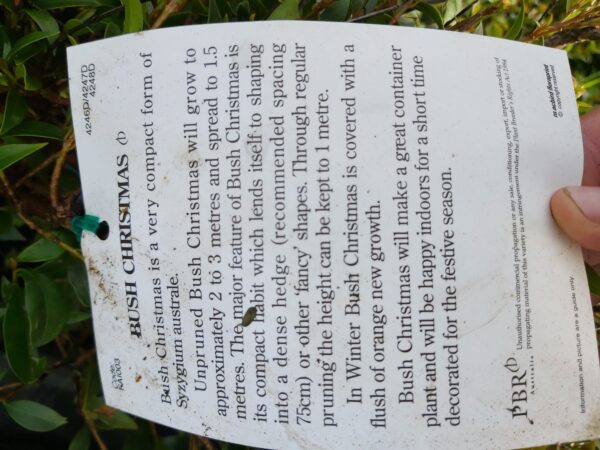 Code:
RAI003
4246P/4247D
4248D
BUSH CHRISTMAS
Bush Christmas is a very compact form of
Syzygium australe.
Unpruned Bush Christmas will grow to
approximately 2 to 3 metres and spread to 1.5
metres. The major feature of Bush Christmas is
its compact habit which lends itself to shaping
into a dense hedge (recommended spacing
75cm) or other 'fancy' shapes. Through regular
pruning the height can be kept to 1 metre.
In Winter Bush Christmas is covered with a
flush of orange new growth.
Bush Christmas will make a great container
plant and will be happy indoors for a short time
decorated for the festive season.
PBR
Australia
Unauthorised commercial propagation or any sale, conditioning, export, import or stocking of
propagating material of this variety is an infringement under the Plant Breeder's Rights Act 1994
Information and picture are a guide only.
macbird floraprint
© copyright reserved